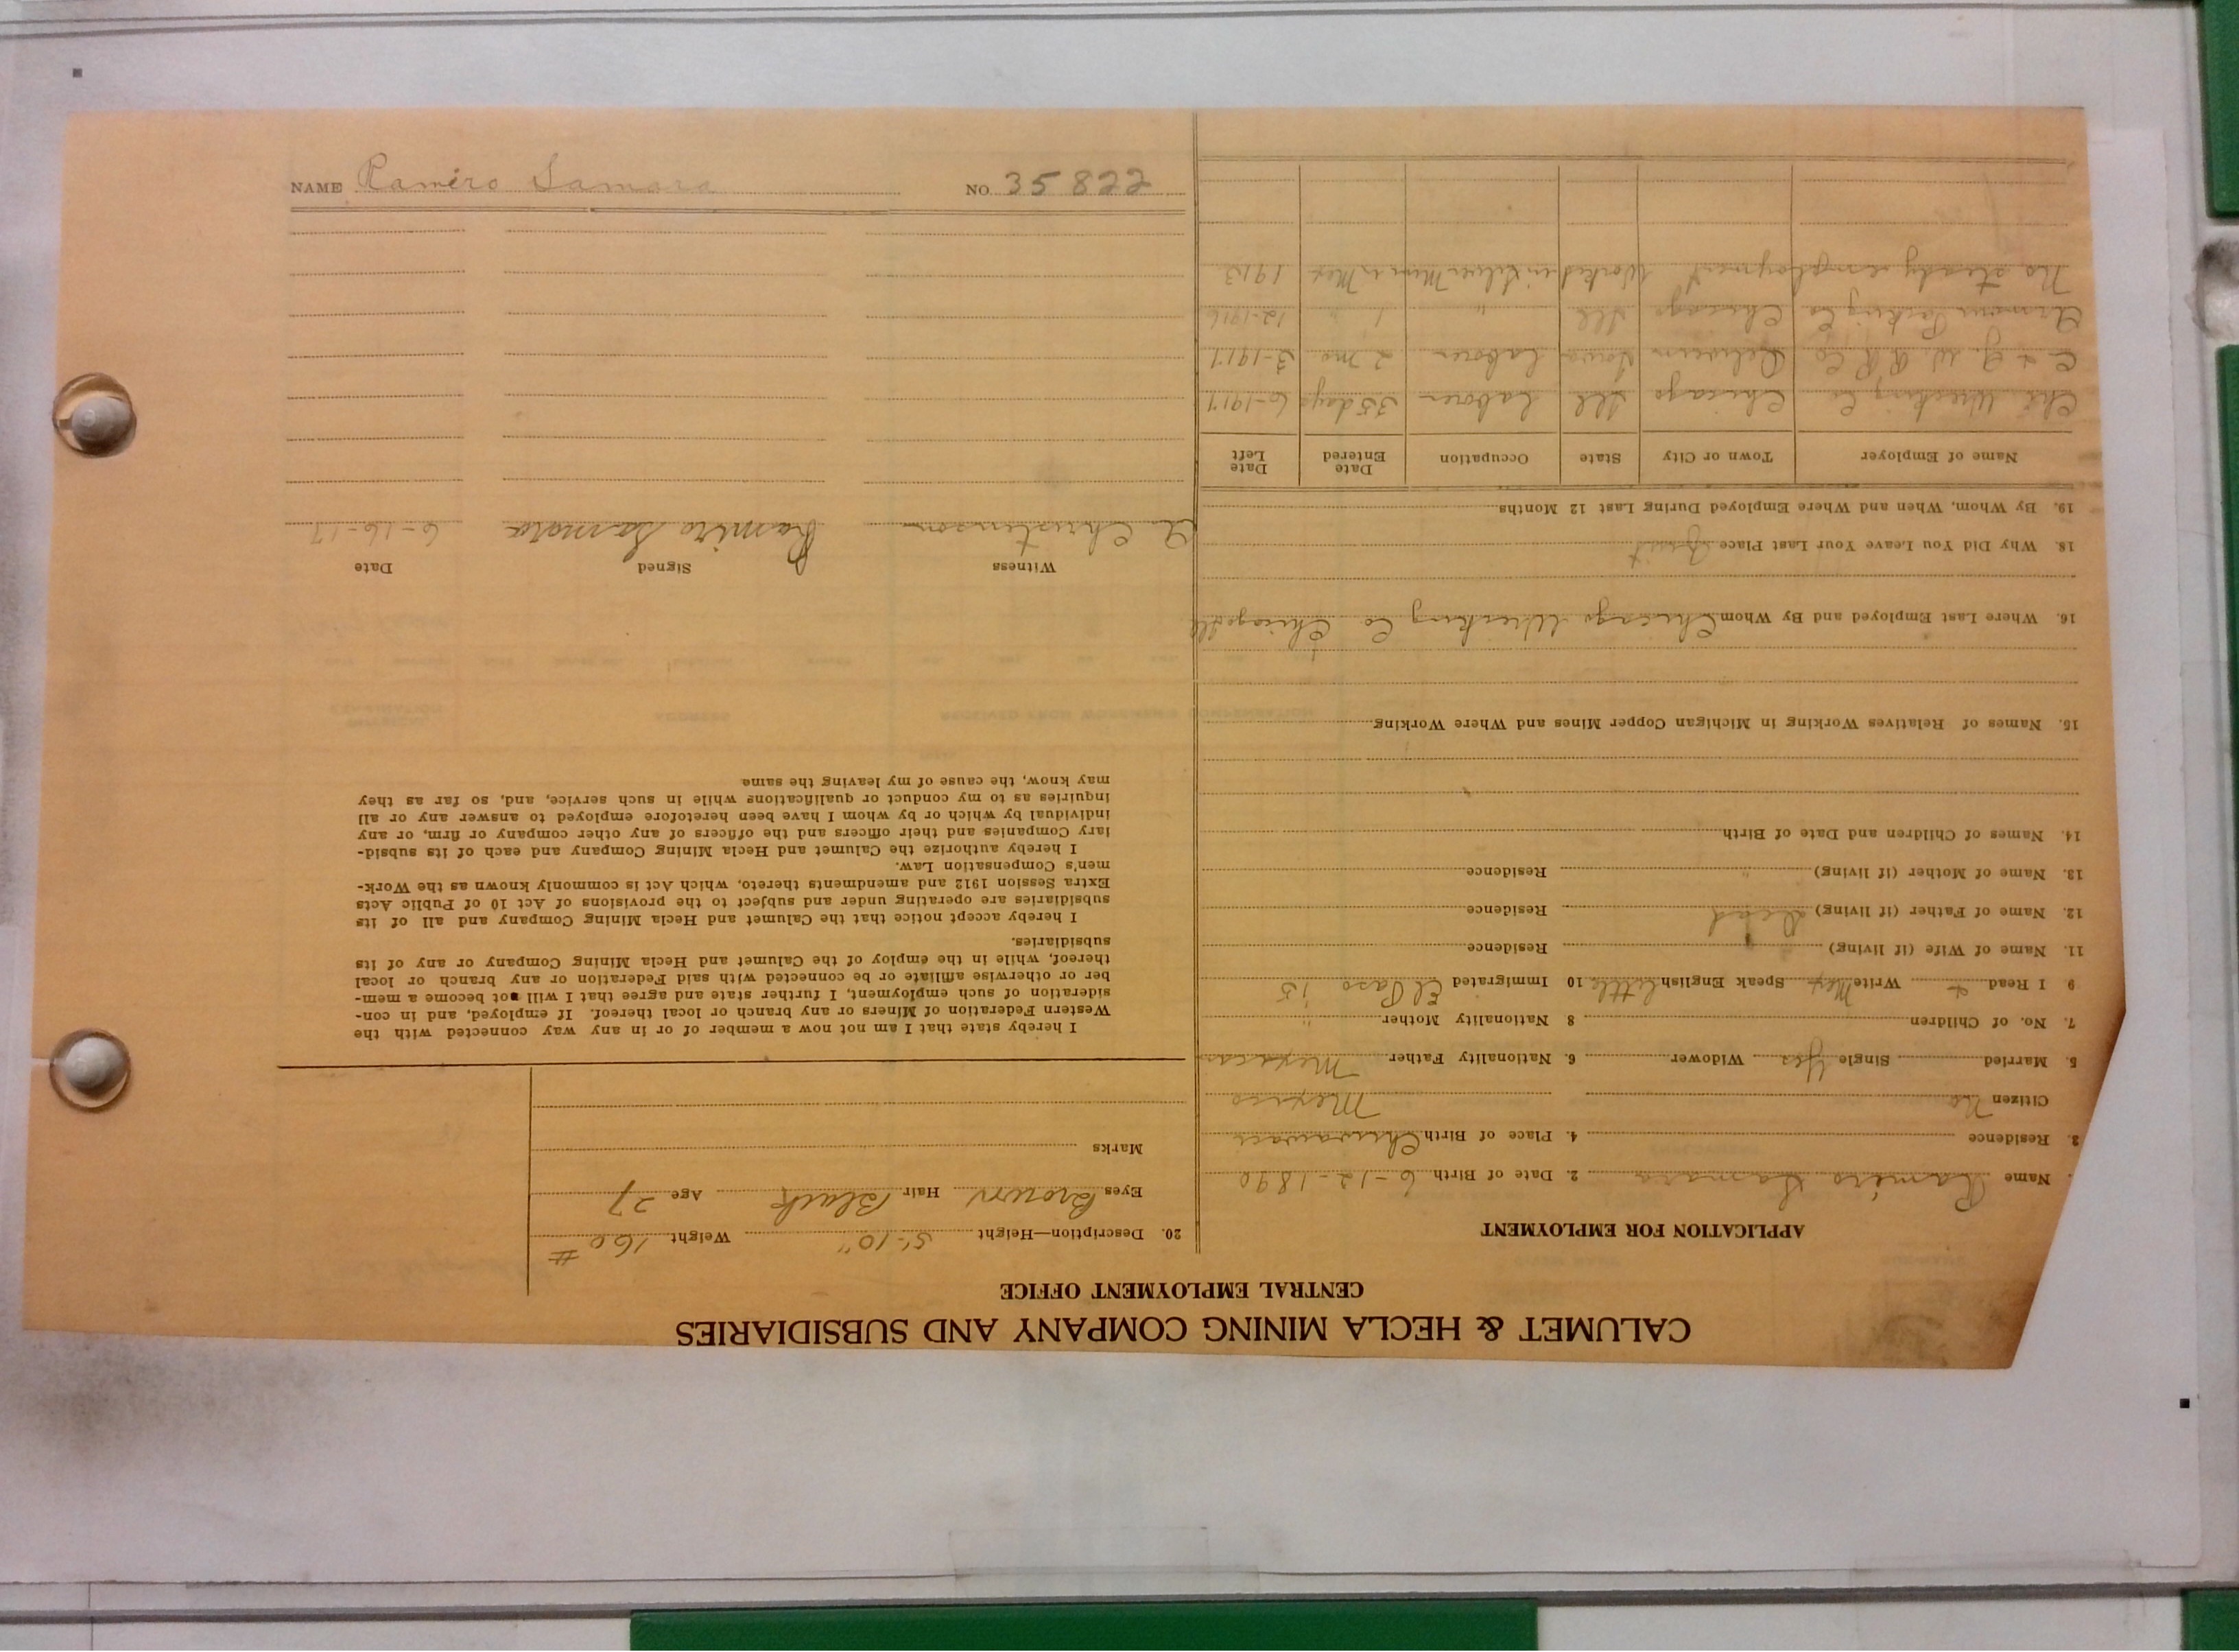 CALUMET & HECLA MINING COMPANY AND SUBSIDIARIES
CENTRAL EMPLOYMENT OFFICE
APPLICATION FOR EMPLOYMENT
Name Ramiro Samara 2. Date of Birth 6-12-1890
3. Residence 4. Place of Birth
Citizen No Mexico
5. Married Single Yes Widower 6. Nationality Father Mexican
7. No. of Children 8 Nationality Mother "
9 I Read + Write Mex Speak English little 10 Immigrated El Paso 15
11. Name of Wife (if living) Residence
12. Name of Father (if living) dead Residence
13. Name of Mother (if living) " Residence
14. Names of Children and Date of Birth
15. Names of Relatives Working in Michigan Copper Mines and Where Working
16. Where Last Employed and By Whom Chicago Wrecking Co Chicago Ill
18. Why Did You Leave Your Last Place Quit
19. By Whom, When and Where Employed During Last 12 Months
Name of Employer Town or City State Occupation Date Entered Date Left
Chi Wrecking Co Chicago Ill Laborer 35 days 6-1917
C + G. W. R R Co Oelwein Iowa Laborer 2 mo 3-1917
Armour Packing Co Chicago Ill " 1 " 12-1916
No steady employment Worked in Silver Mine in Mex 1913
20. Description—Height 5'-10" Weight 160 #
Eyes Brown Hair Black Age 27
Marks
I hereby state that I am not now a member of or in any way connected with the
Western Federation of Miners or any branch or local thereof. If employed, and in con-
sideration of such employment, I further state and agree that I will not become a mem-
ber or otherwise affiliate or be connected with said Federation or any branch or local
thereof, while in the employ of the Calumet and Hecla Mining Company or any of its
subsidiaries.
I hereby accept notice that the Calumet and Hecla Mining Company and all of its
subsidiaries are operating under and subject to the provisions of Act 10 of Public Acts
Extra Session 1912 and amendments thereto, which Act is commonly known as the Work-
men's Compensation Law.
I hereby authorize the Calumet and Hecla Mining Company and each of its subsid-
iary Companies and their officers and the officers of any other company or firm, or any
individual by which or by whom I have been heretofore employed to answer any or all
inquiries as to my conduct or qualifications while in such service, and, so far as they
may know, the cause of my leaving the same
Witness Signed Date
A Christenson Ramiro Samara 6-16-17
NAME Ramiro Samara NO. 35822